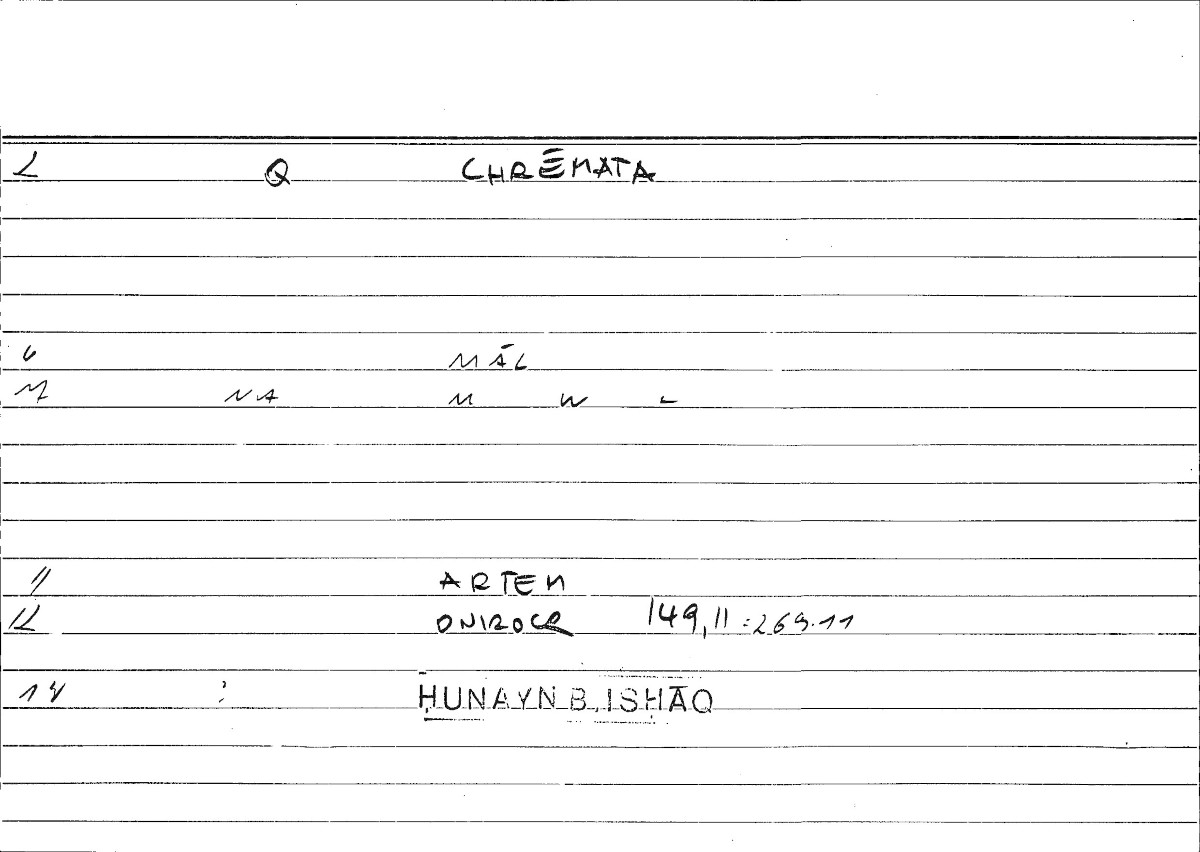 2 Q CHRĒMATA
6 MĀL
7 NA M W L
11 ARTEM
12 ONIROCR 149,11 = 269.11
14 : ḤUNAYN B. ISḤĀQ